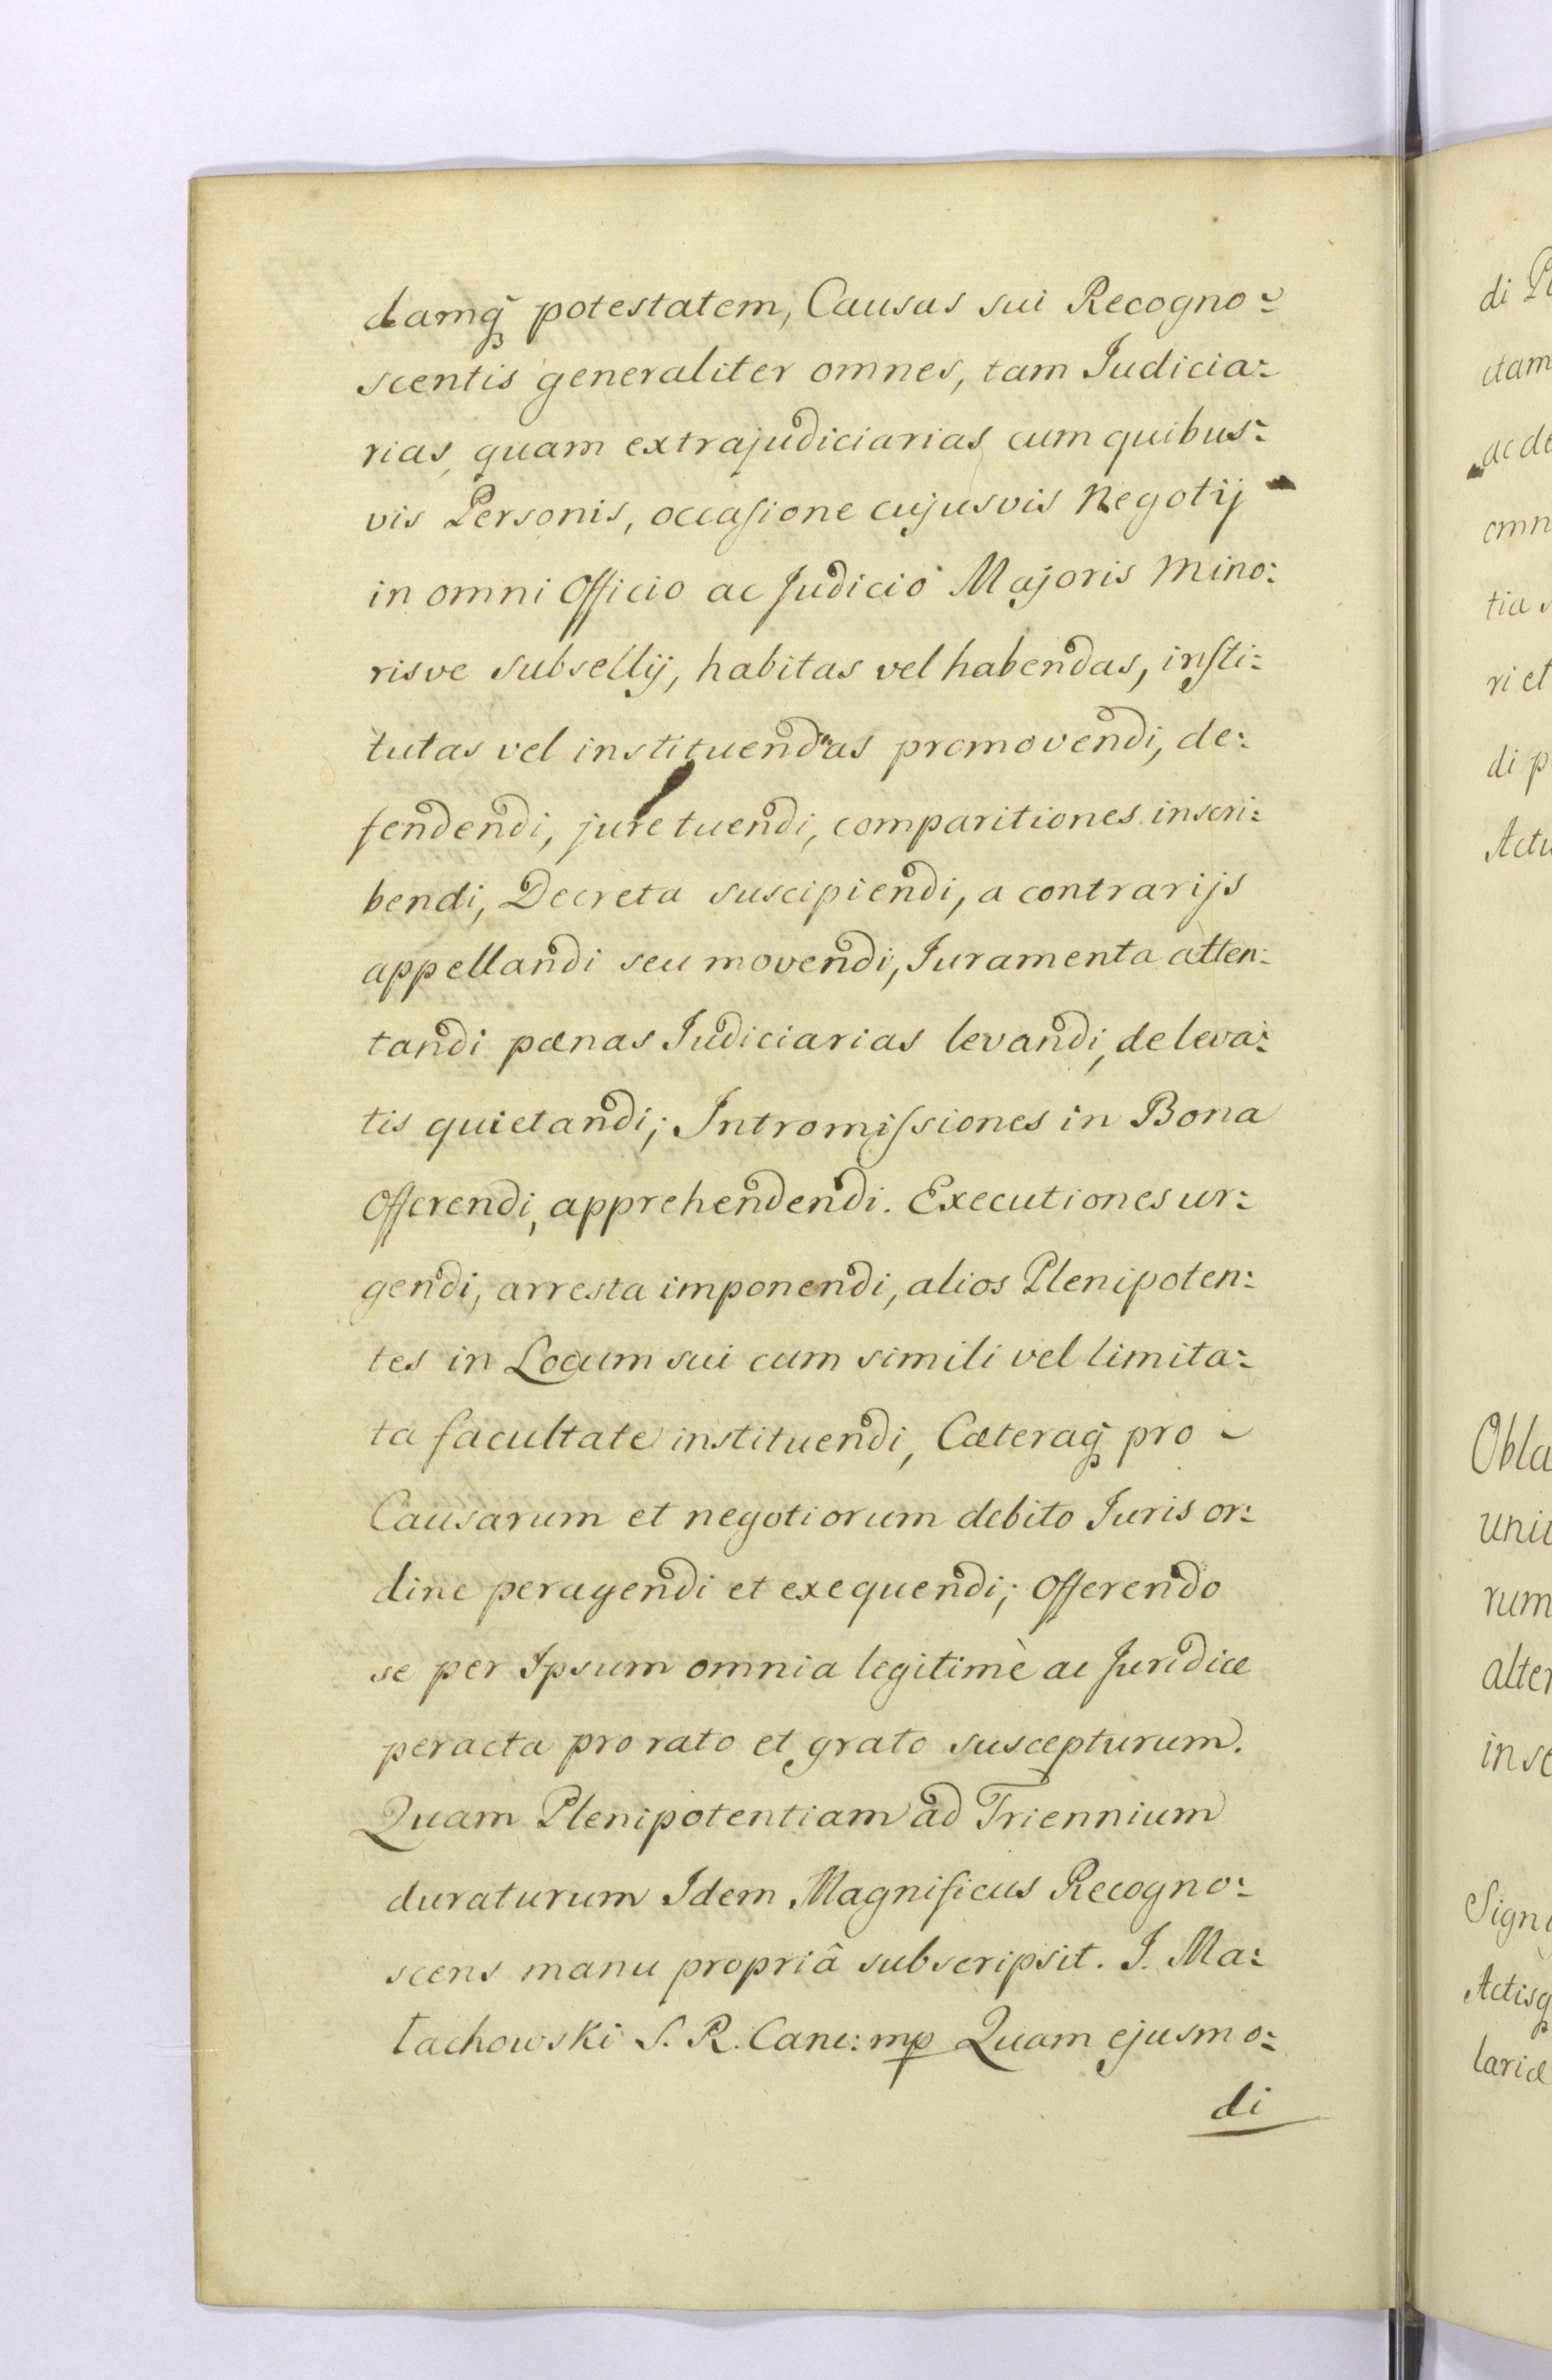 damq̃ potestatem, Causas sui Recogno:
scentis generaliter omnes, tam Judicia:
rias, quam extrajudiciarias cum quibus:
vis Personis, occasione cujusvis Negotij
in omni Officio ac Judicio Majoris mino:
risve subsellij, habitas vel habendas, insti:
tutas vel instituendas promovendi, de:
fendendi, jure tuendi, comparitiones inscri:
bendi, Decreta suscipiendi, a contrarijs
appellandi seu movendi, Juramenta atten:
tandi pænas Judiciarias levandi, de leva:
tis quietandi; Intromissiones in Bona
Offerendi, apprehendendi. Executiones ur:
gendi, arresta imponendi, alios Plenipoten:
tes in Locum sui cum simili vel limita:
ta facultate instituendi, Cæteraq̃ pro
Causarum et negotiorum debito Juris or:
dine peragendi et exequendi; Offerendo
se per Ipsum omnia legitimè ac Juridice
peracta pro rato et grato suscepturum.
Quam Plenipotentiam ad Triennium
duraturum Idem Magnificus Recogno:
scens manu propriâ subscripsit. J. Ma:
łachowski S. R. Canc: mp Quam ejusmo:
di
di
dam
ac de
omn
tia
ri et
di p
Actu
Obla
uni
rum
alter
in
Sign
Actisq
lariæ